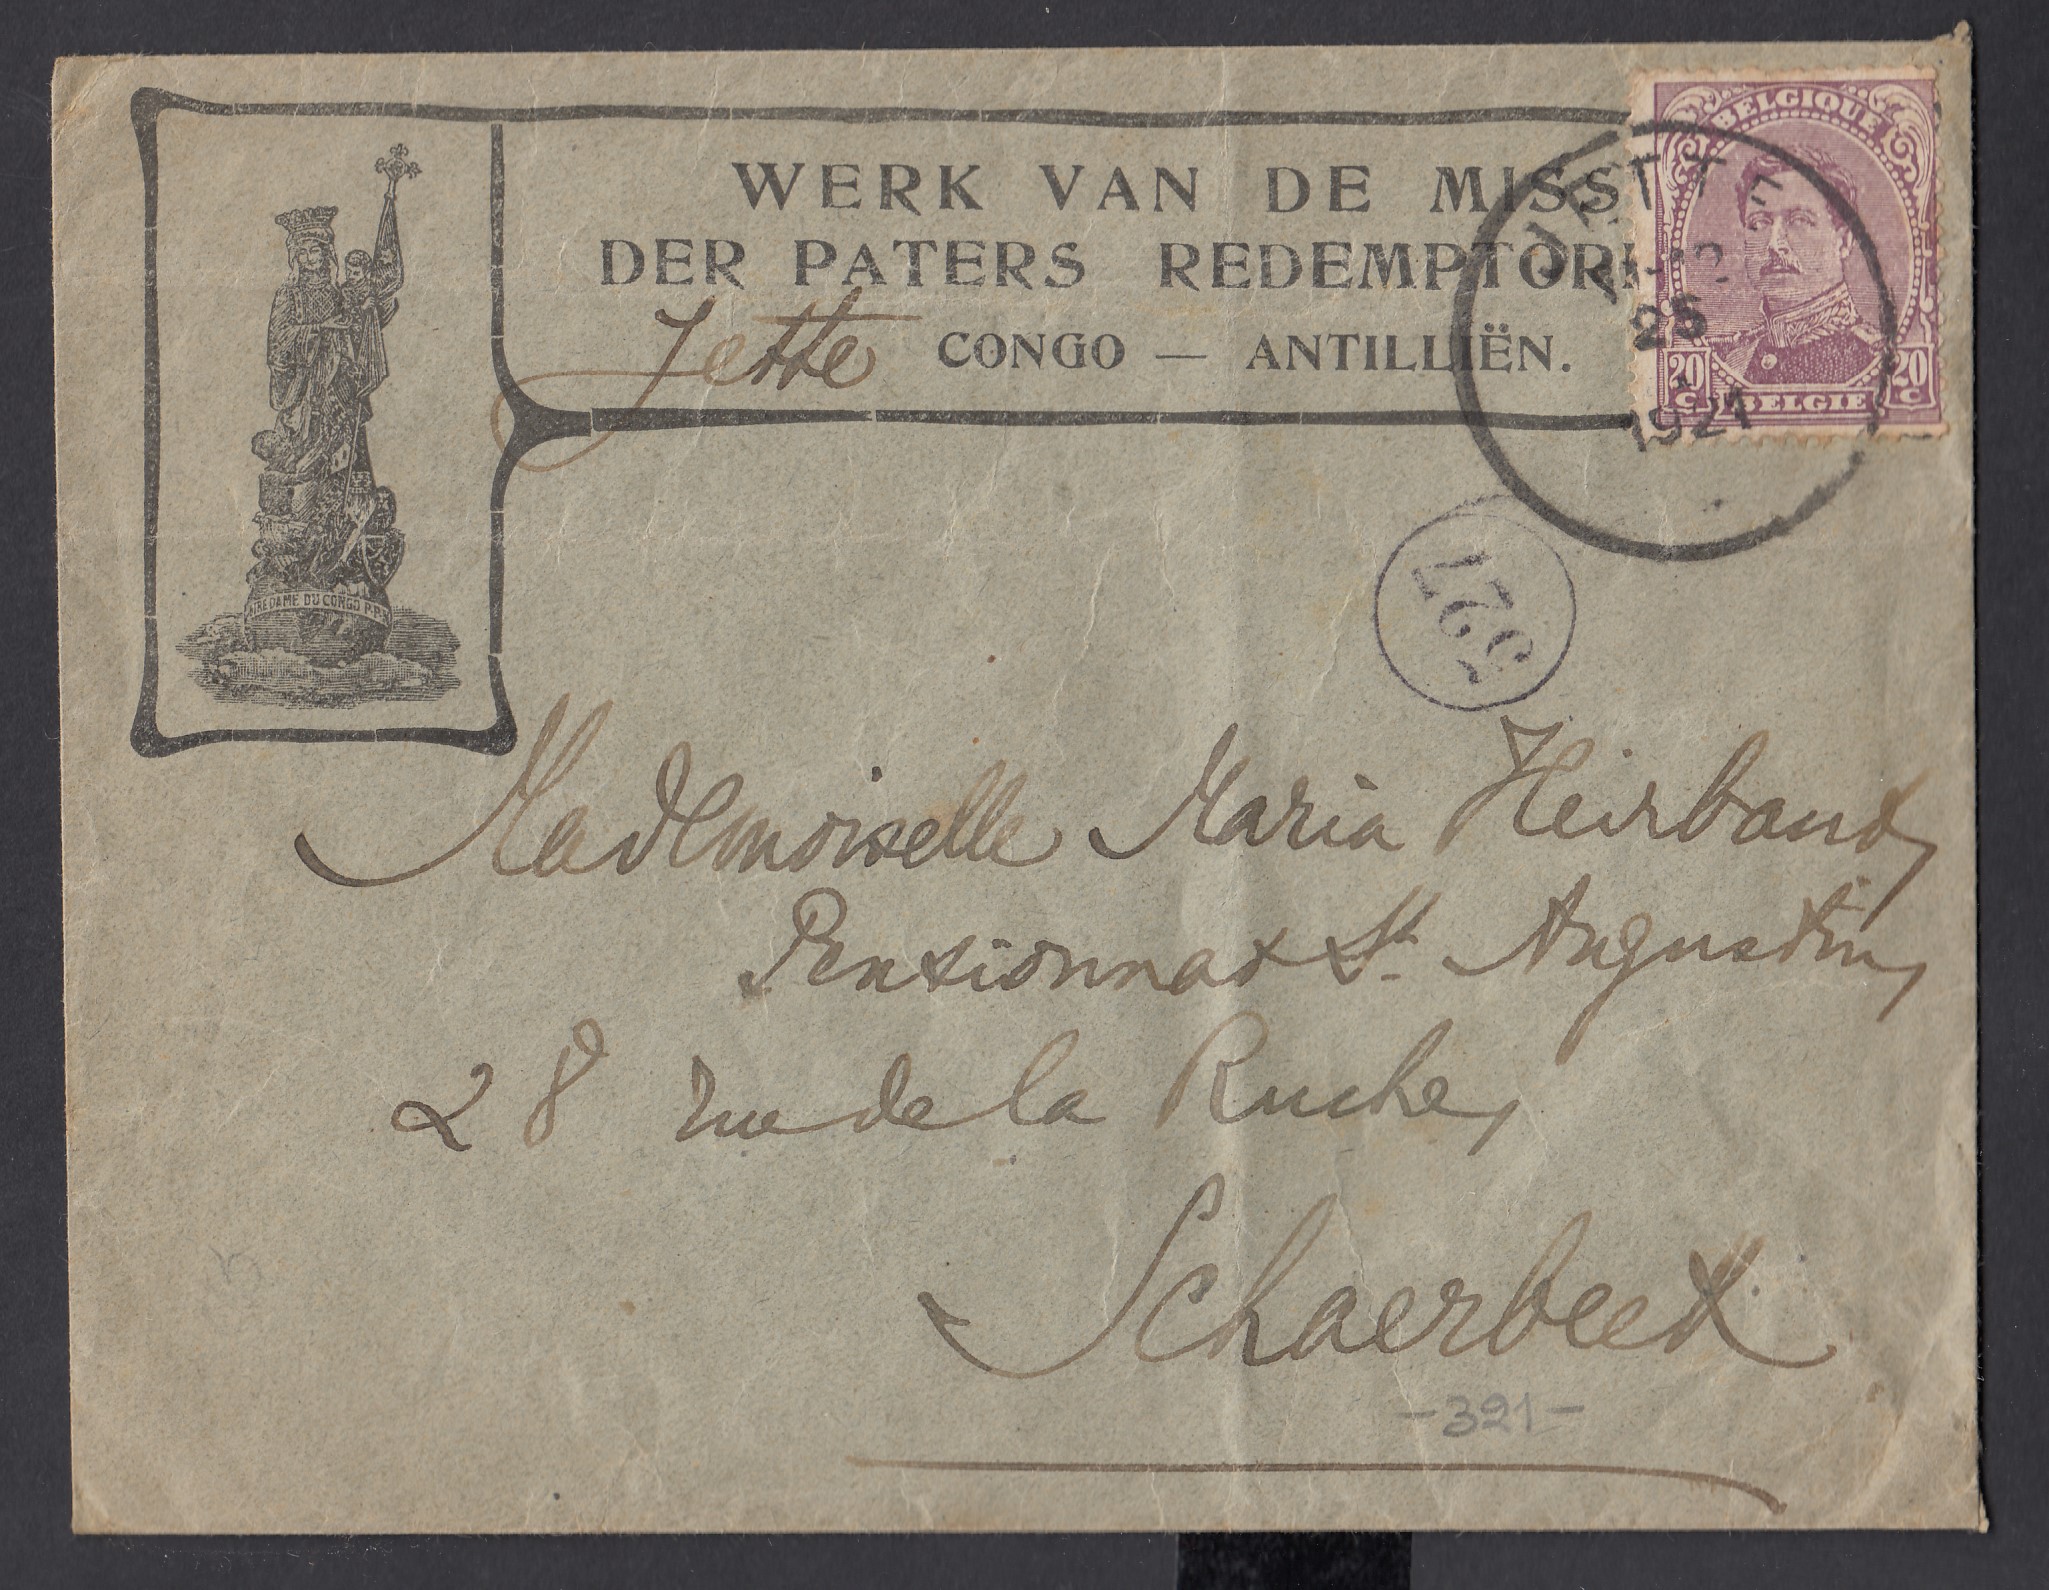 WERK VAN DE MISS
DER PATERS REDEMPTORI
Jette CONGO — ANTILLIËN.
BELGIQUE
JETTE
-12
25
1921
20 C 20 C
BELGIE
327
TRE DAME DU CONGO P.P.
Mademoiselle Maria Heirbaut,
Pensionnat St. Augustin,
28 rue de la Ruche,
Schaerbeek
-321-